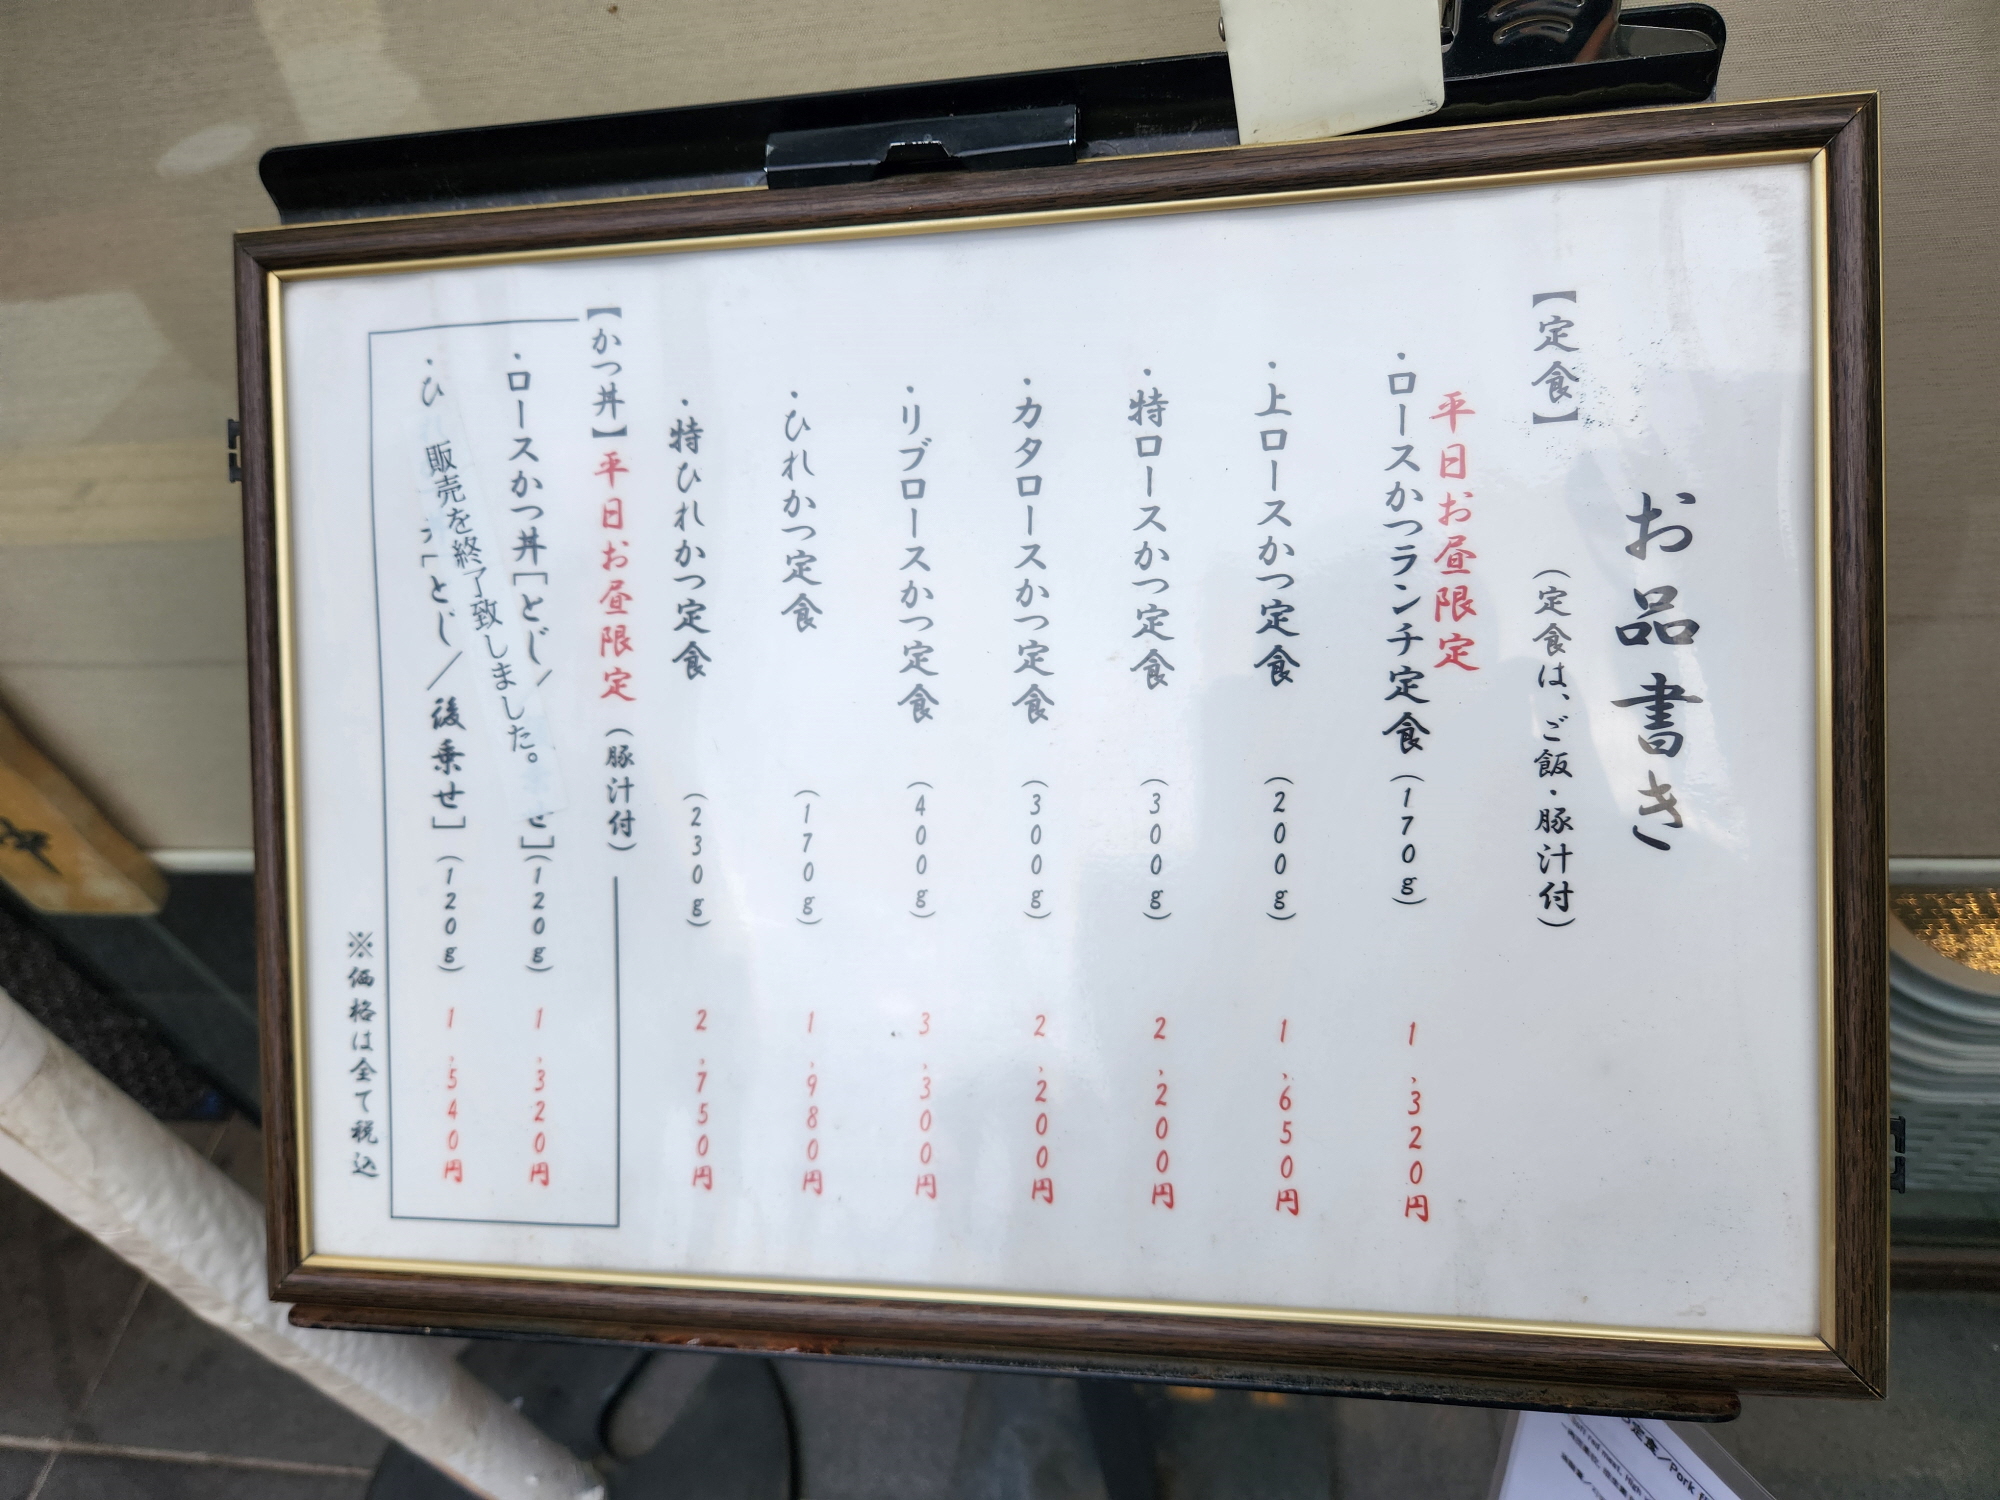 お品書き
【定食】（定食は、ご飯・豚汁付）
平日お昼限定
・ロースかつランチ定食（170g）1,320円
・上ロースかつ定食（200g）1,650円
・特ロースかつ定食（300g）2,200円
・カタロースかつ定食（300g）2,200円
・リブロースかつ定食（400g）3,300円
・ひれかつ定食（170g）1,980円
・特ひれかつ定食（230g）2,750円
【かつ丼】平日お昼限定（豚汁付）
・ロースかつ丼［とじ／せ］（120g）1,320円
販売を終了致しました。
・ひ［とじ／後乗せ］（120g）1,540円
※価格は全て税込
定食／Pork